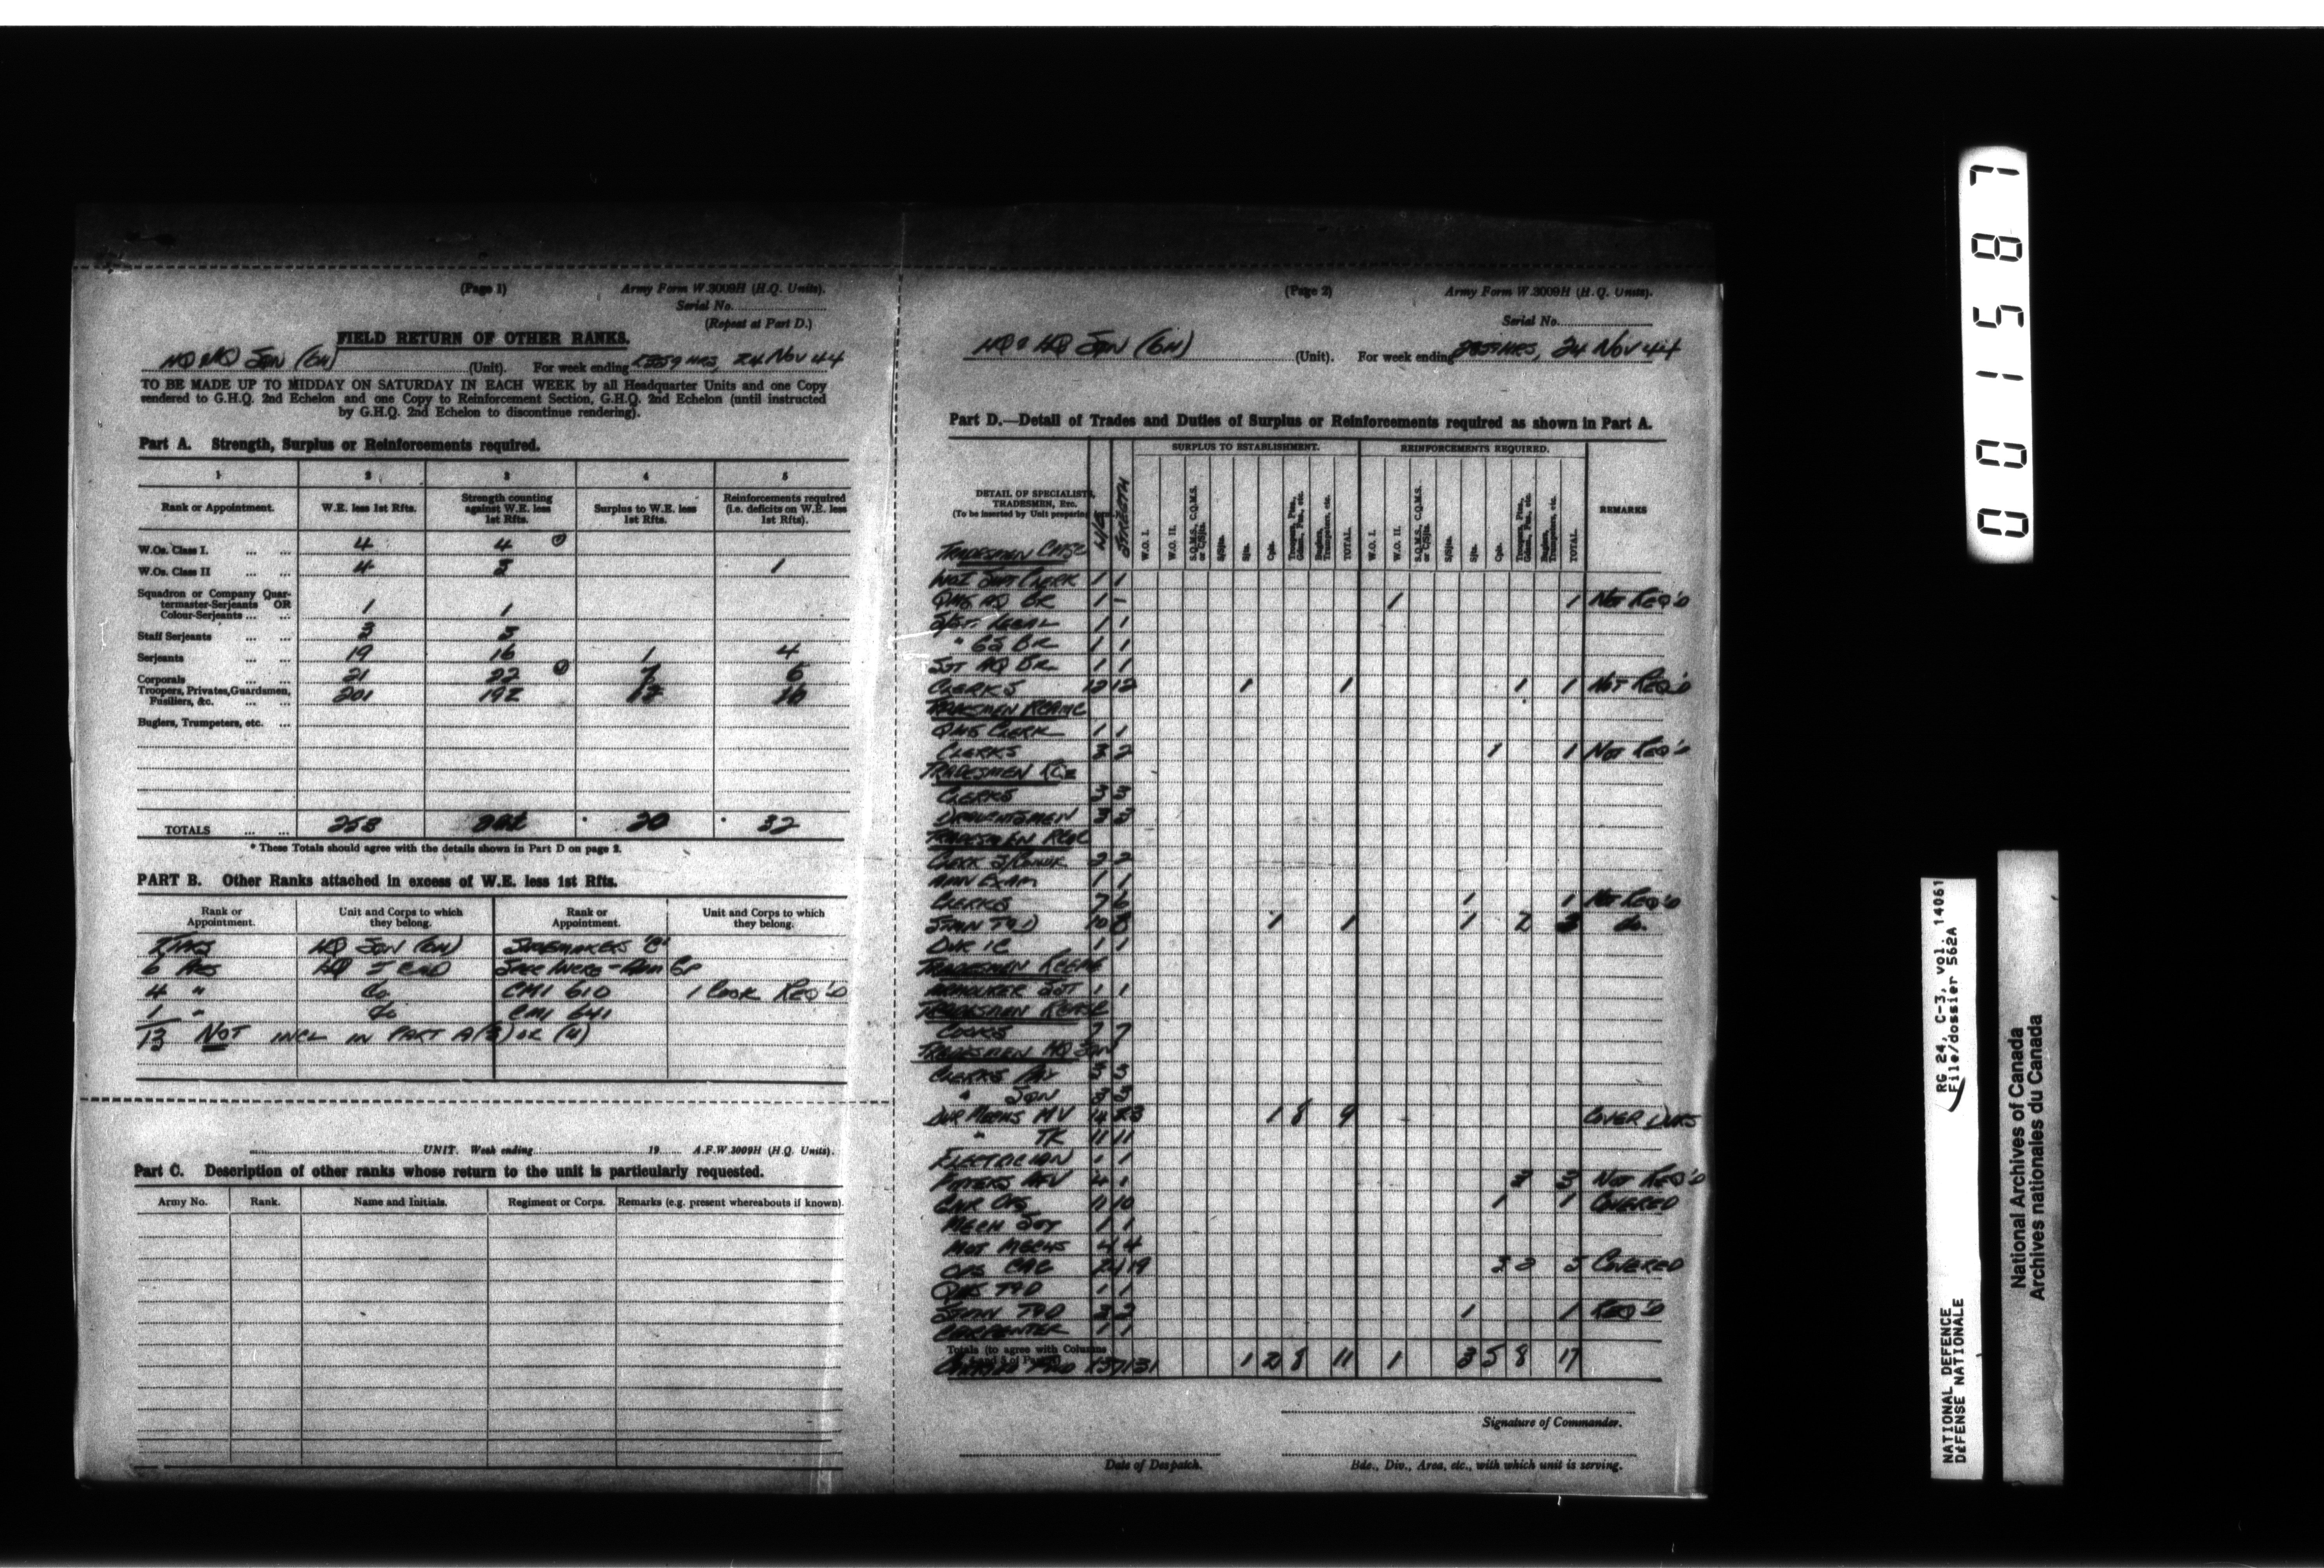 (Page 1) Army Form W.3009H (H.Q. Units).
Serial No.
(Repeat at Part D.)
FIELD RETURN OF OTHER RANKS.
HQ & HQ SQN (GH) (Unit). For week ending 2359 HRS, 24 NOV 44
TO BE MADE UP TO MIDDAY ON SATURDAY IN EACH WEEK by all Headquarter Units and one Copy
rendered to G.H.Q. 2nd Echelon and one Copy to Reinforcement Section, G.H.Q. 2nd Echelon (until instructed
by G.H.Q. 2nd Echelon to discontinue rendering).
Part A. Strength, Surplus or Reinforcements required.
1 2 3 4 5
Rank or Appointment. W.E. less 1st Rfts. Strength counting against W.E. less 1st Rfts. Surplus to W.E. less 1st Rfts. Reinforcements required (i.e. deficits on W.E. less 1st Rfts).
W.Os. Class I. 4 4
W.Os. Class II 4 3 1
Squadron or Company Quar-
termaster-Serjeants OR
Colour-Serjeants 1 1
Staff Serjeants 3 3
Serjeants 19 16 1 4
Corporals 21 22
Troopers, Privates, Guardsmen,
Fusiliers, &c. 201 192
Buglers, Trumpeters, etc.
TOTALS 253 20 32
* These Totals should agree with the details shown in Part D on page 2.
PART B. Other Ranks attached in excess of W.E. less 1st Rfts.
Rank or Appointment. Unit and Corps to which they belong. Rank or Appointment. Unit and Corps to which they belong.
HQ SQN (GH) SHOEMAKERS 'C'
6 HQ 5 CAD
4 " do CMI 610 1 COOK REQ'D
1 " do CMI 641
13 NOT INCL IN PART A(3) OR (4)
UNIT. Week ending 19 A.F.W.3009H (H.Q. Units).
Part C. Description of other ranks whose return to the unit is particularly requested.
Army No. Rank. Name and Initials. Regiment or Corps. Remarks (e.g. present whereabouts if known).
(Page 2) Army Form W.3009H (H.Q. Units).
Serial No.
HQ & HQ SQN (GH) (Unit). For week ending 2359 HRS, 24 NOV 44
Part D.—Detail of Trades and Duties of Surplus or Reinforcements required as shown in Part A.
SURPLUS TO ESTABLISHMENT. REINFORCEMENTS REQUIRED.
DETAIL OF SPECIALISTS, TRADESMEN, Etc.
(To be inserted by Unit preparing
W/E STRENGTH W.O. I. W.O. II. S.Q.M.S., C.Q.M.S. or C/Sjts. S/Sjts. Sjts. Cpls. Troopers, Ptes., Gdsmn., Fus., etc. Buglers, Trumpeters, etc. TOTAL. W.O. I. W.O. II. S.Q.M.S., C.Q.M.S. or C/Sjts. S/Sjts. Sjts. Cpls. Troopers, Ptes., Gdsmn., Fus., etc. Buglers, Trumpeters, etc. TOTAL. REMARKS
TRADESMEN CMSC
WOI SUPT CLERK 1 1
QMS AQ BR 1 - 1 1 NOT REQ'D
S/SJT LEGAL 1 1
" GS BR 1 1
SJT AQ BR 1 1
CLERKS 12 12 1 1 1 1 NOT REQ'D
TRADESMEN RCAMC
QMS CLERK 1 1
CLERKS 3 2 1 1 NOT REQ'D
TRADESMEN RCE
CLERKS 3 3
DRAUGHTSMEN 3 3
TRADESMEN RCOC
CLERK 2 2
AMN EXAM 1 1
CLERKS 7 6 1 1 NOT REQ'D
STMN T&D 10 8 1 1 1 2 3 do.
DVR IC 1 1
TRADESMEN RCEME
ARMOURER SJT 1 1
TRADESMEN RCASC
COOKS 7 7
TRADESMEN HQ SQN
CLERKS PAY 3 3
" SQN 3 3
DVR MECHS MV 14 23 1 8 9 COVER DVRS
" TK 11 11
ELECTRICIAN 1 1
FITTERS AFV 4 1 3 3 NOT REQ'D
GNR OPS 11 10 1 1 COVERED
MECH SJT 1 1
MOT MECHS 4 4
OPS CAC 24 19 3 2 5 COVERED
QMS T&D 1 1
STMN T&D 3 2 1 1 REQ'D
CARPENTER 1 1
Totals (to agree with Columns
CARRIED FWD 137 131 1 2 8 11 1 3 5 8 17
Signature of Commander.
Date of Despatch. Bde., Div., Area, etc., with which unit is serving.
001587
NATIONAL DEFENCE RG 24, C-3, vol. 14061
DÉFENSE NATIONALE File/dossier 562A
National Archives of Canada
Archives nationales du Canada